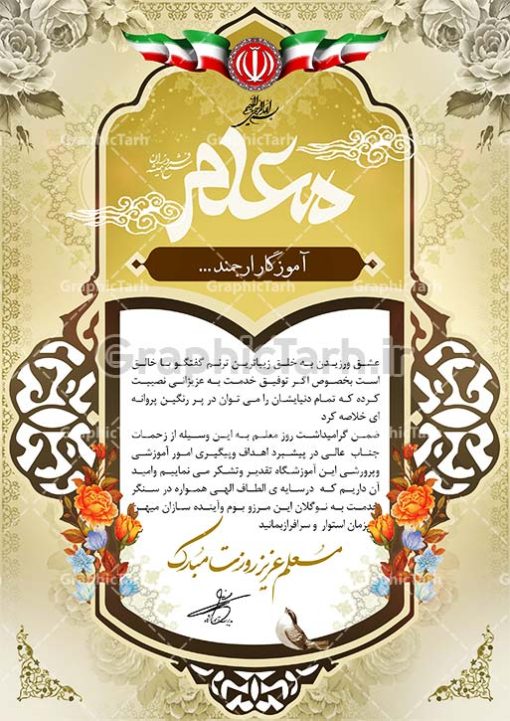 معلم
شمع همیشه فروزان
آموزگار ارجمند...
عشق ورزیدن به خلق زیباترین ترنم گفتگو با خالق
است بخصوص اگر توفیق خدمت به عزیزانی نصیبت
کرده که تمام دنیایشان را می توان در پر رنگین پروانه
ای خلاصه کرد
ضمن گرامیداشت روز معلم به این وسیله از زحمات
جناب عالی در پیشبرد اهداف وپیگیری امور آموزشی
وپرورشی این آموزشگاه تقدیر وتشکر می نماییم وامید
آن داریم که درسایه ی الطاف الهی همواره در سنگر
خدمت به نوگلان این مرزو بوم وآینده سازان میهن
عزیزمان استوار و سرافرازبمانید
معلم عزیز روزت مبارک
GraphicTarh.ir
GraphicTarh